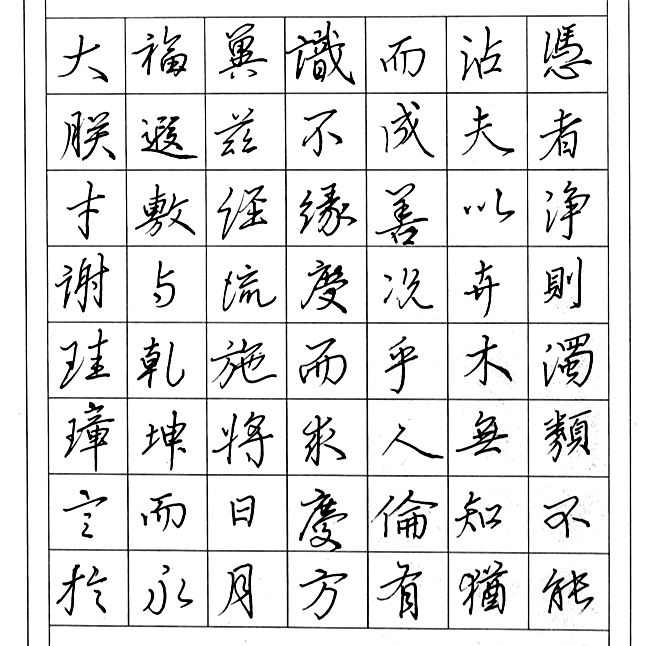 憑者淨則濁類不能
沾夫以卉木無知猶
而成善況乎人倫有
識不緣慶而求慶方
冀茲經流施將日月
福遐敷与乾坤而永
大朕才謝珪璋言於